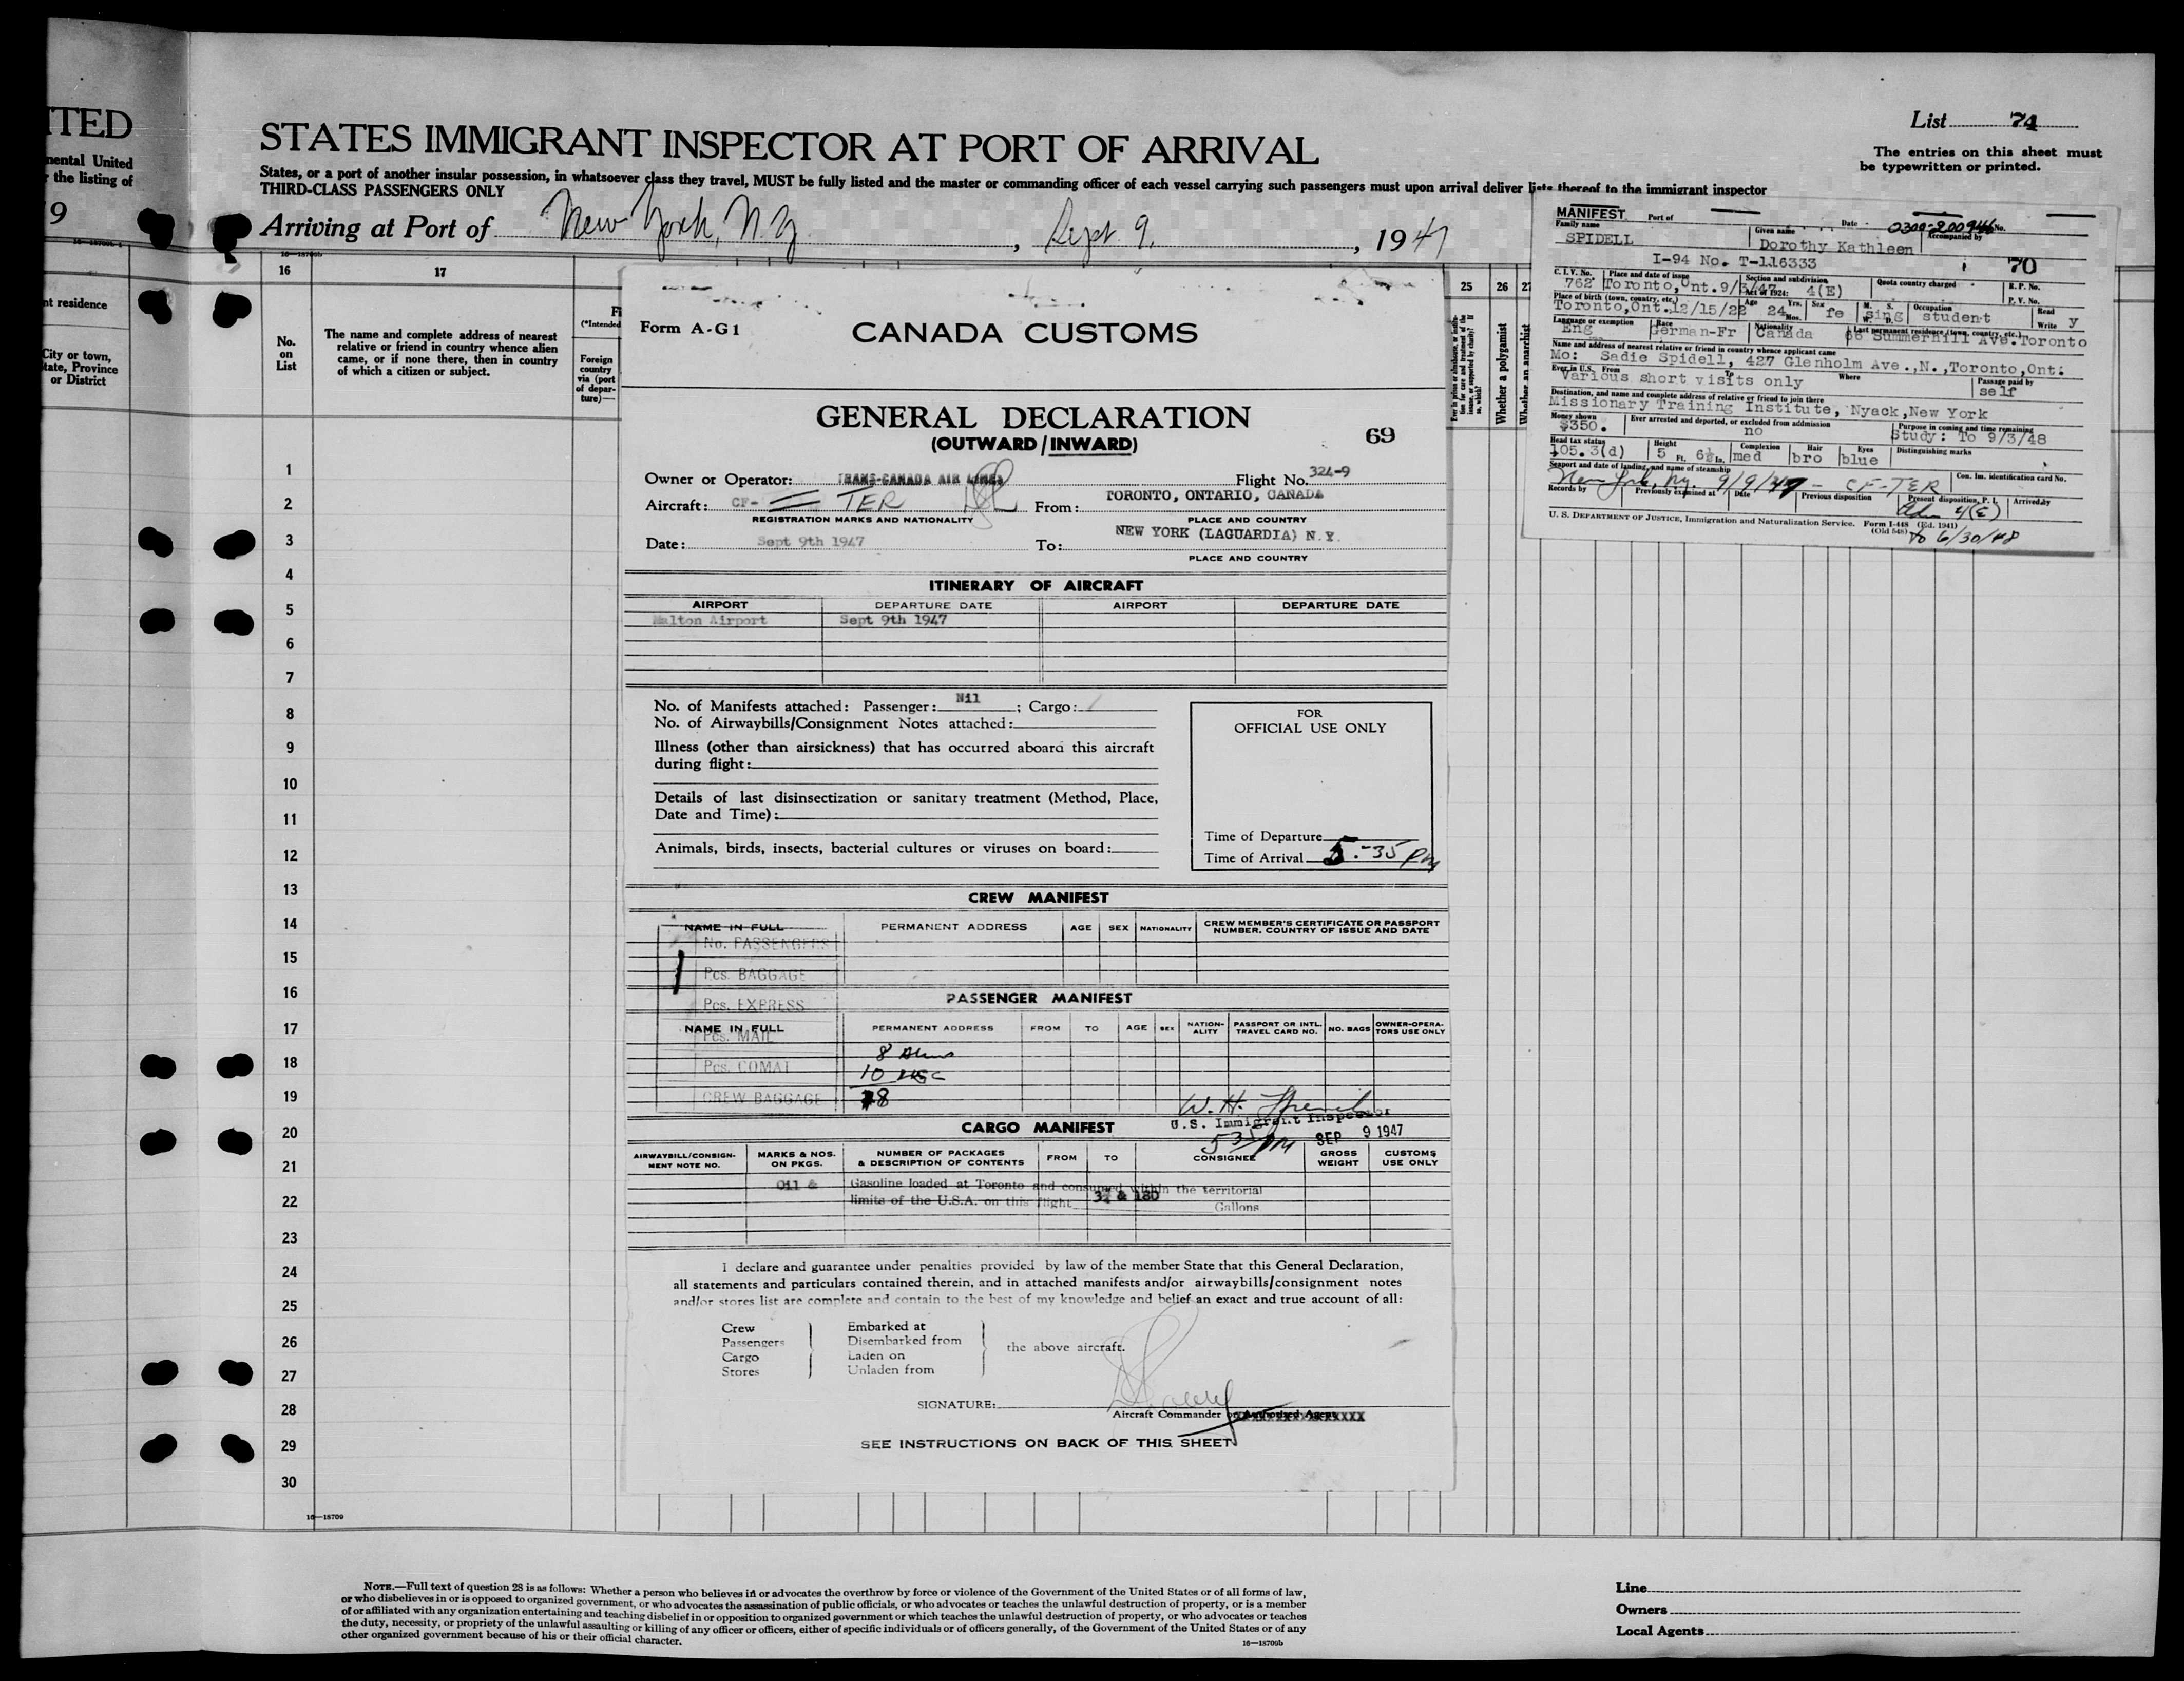 ITED
mental United
r the listing of
9
16—18709b-1
nt residence
City or town,
tate, Province
or District
STATES IMMIGRANT INSPECTOR AT PORT OF ARRIVAL
List 74
The entries on this sheet must
be typewritten or printed.
States, or a port of another insular possession, in whatsoever class they travel, MUST be fully listed and the master or commanding officer of each vessel carrying such passengers must upon arrival deliver lists thereof to the immigrant inspector
THIRD-CLASS PASSENGERS ONLY
Arriving at Port of New York, N.Y. , Sept. 9. , 1947
16—18709b
16 17 25 26 27
No.
on
List
The name and complete address of nearest
relative or friend in country whence alien
came, or if none there, then in country
of which a citizen or subject.
Fi
(*Intended
Foreign
country
via (port
of depar-
ture)—
Whether a polygamist
Whether an anarchist
1
2
3
4
5
6
7
8
9
10
11
12
13
14
15
16
17
18
19
20
21
22
23
24
25
26
27
28
29
30
16—18709
Form A-G1
CANADA CUSTOMS
GENERAL DECLARATION
(OUTWARD / INWARD)
69
Owner or Operator: TRANS-CANADA AIR LINES Flight No. 324-9
Aircraft: CF- TER From: TORONTO, ONTARIO, CANADA
REGISTRATION MARKS AND NATIONALITY PLACE AND COUNTRY
Date: Sept 9th 1947 To: NEW YORK (LAGUARDIA) N.Y.
PLACE AND COUNTRY
ITINERARY OF AIRCRAFT
AIRPORT DEPARTURE DATE AIRPORT DEPARTURE DATE
Malton Airport Sept 9th 1947
No. of Manifests attached: Passenger: Nil ; Cargo: /
No. of Airwaybills/Consignment Notes attached:
Illness (other than airsickness) that has occurred aboard this aircraft
during flight:
Details of last disinsectization or sanitary treatment (Method, Place,
Date and Time):
Animals, birds, insects, bacterial cultures or viruses on board:
FOR
OFFICIAL USE ONLY
Time of Departure
Time of Arrival 5:-35 PM
CREW MANIFEST
NAME IN FULL PERMANENT ADDRESS AGE SEX NATIONALITY CREW MEMBER'S CERTIFICATE OR PASSPORT
NUMBER. COUNTRY OF ISSUE AND DATE
No. PASSENGERS
Pcs. BAGGAGE
Pcs. EXPRESS
PASSENGER MANIFEST
NAME IN FULL PERMANENT ADDRESS FROM TO AGE SEX NATION-
ALITY PASSPORT OR INTL.
TRAVEL CARD NO. NO. BAGS OWNER-OPERA-
TORS USE ONLY
Pcs. MAIL
8
Pcs. COMAT
10 USC
CREW BAGGAGE
18
W. H.
U.S. Immigrant Inspector
CARGO MANIFEST
5 35 PM SEP 9 1947
AIRWAYBILL/CONSIGN-
MENT NOTE NO. MARKS & NOS.
ON PKGS. NUMBER OF PACKAGES
& DESCRIPTION OF CONTENTS FROM TO CONSIGNEE GROSS
WEIGHT CUSTOMS
USE ONLY
Oil & Gasoline loaded at Toronto and consumed within the territorial
limits of the U.S.A. on this flight & 180 Gallons
I declare and guarantee under penalties provided by law of the member State that this General Declaration,
all statements and particulars contained therein, and in attached manifests and/or airwaybills/consignment notes
and/or stores list are complete and contain to the best of my knowledge and belief an exact and true account of all:
Crew Embarked at
Passengers Disembarked from
Cargo Laden on
Stores Unladen from
the above aircraft.
SIGNATURE:
Aircraft Commander or Authorized Agent
SEE INSTRUCTIONS ON BACK OF THIS SHEET
MANIFEST Port of Date 0300-200946 No.
Family name Given name Accompanied by
SPIDELL Dorothy Kathleen
I-94 No. T-116333 70
C. I. V. No. Place and date of issue Section and subdivision Act of 1924: Quota country charged R. P. No.
762 Toronto,Ont.9/3/47 4(E) P. V. No.
Place of birth (town, country, etc.) Age Yrs. Mos. Sex M. S. W. D. Occupation Read
Toronto,Ont.12/15/22 24 fe sing student Write y
Language or exemption Race Nationality Last permanent residence (town, country, etc.)
Eng German-Fr Canada 66 Summerhill Ave.Toronto
Name and address of nearest relative or friend in country whence applicant came
Mo: Sadie Spidell, 427 Glenholm Ave.,N.,Toronto,Ont.
Ever in U.S. From To Where Passage paid by
Various short visits only self
Destination, and name and complete address of relative or friend to join there
Missionary Training Institute, Nyack,New York
Money shown Ever arrested and deported, or excluded from admission Purpose in coming and time remaining
$350. no Study: To 9/3/48
Head tax status Height Complexion Hair Eyes Distinguishing marks
105.3(d) 5 Ft. 6½ In. med bro blue
Seaport and date of landing, and name of steamship Con. Im. identification card No.
New York, Ny. 9/9/47 - CF-TER
Records by Previously examined at Date Previous disposition Present disposition, P. I. Arrived by
Adm 4(E)
U. S. DEPARTMENT OF JUSTICE, Immigration and Naturalization Service. Form I-448 (Ed. 1941)
(Old 548) to 6/30/48
NOTE.—Full text of question 28 is as follows: Whether a person who believes in or advocates the overthrow by force or violence of the Government of the United States or of all forms of law,
or who disbelieves in or is opposed to organized government, or who advocates the assassination of public officials, or who advocates or teaches the unlawful destruction of property, or is a member
of or affiliated with any organization entertaining and teaching disbelief in or opposition to organized government or which teaches the unlawful destruction of property, or who advocates or teaches
the duty, necessity, or propriety of the unlawful assaulting or killing of any officer or officers, either of specific individuals or of officers generally, of the Government of the United States or of any
other organized government because of his or their official character.
16—18709b
Line
Owners
Local Agents